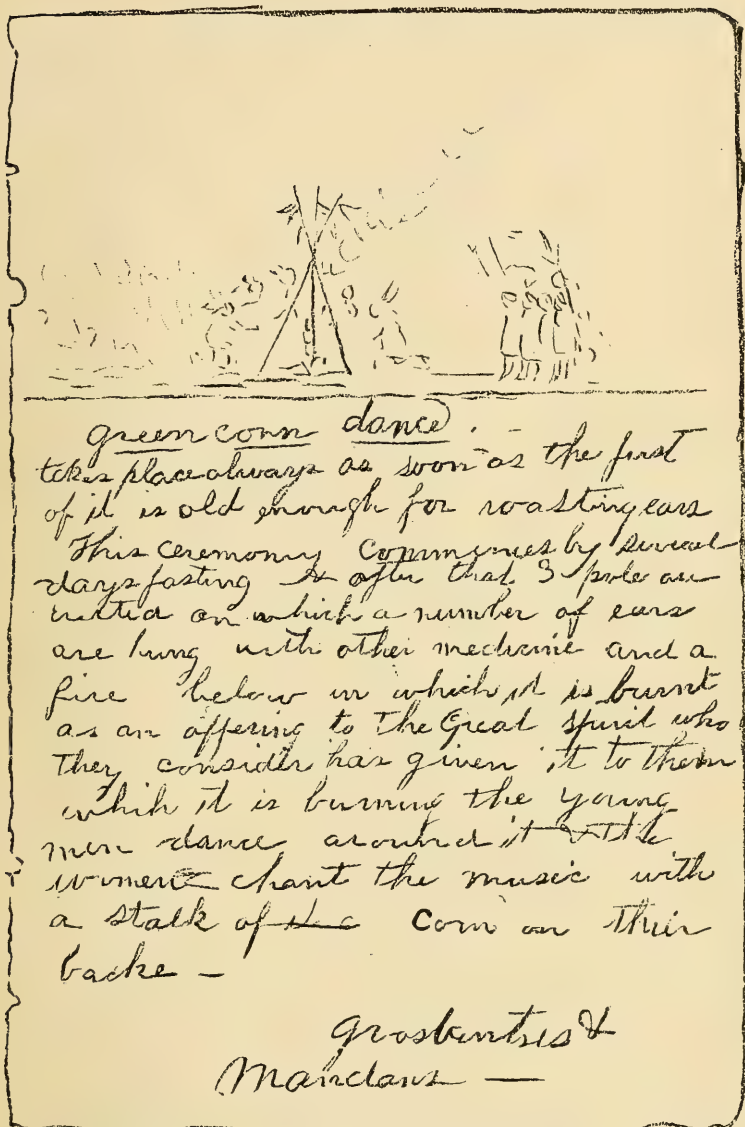 green corn dance. -
takes place always as soon as the first
of it is old enough for roasting ears
This ceremony commences by several
days fasting & after that 3 pole are
erected on which a number of ears
are hung with other medicine and a
fire below in which it is burnt
as an offering to the Great Spirit who
they consider has given it to them
which it is burning the young
men dance around it & the
women chant the music with
a stalk of the corn on their
backe —
Grosbentres &
Mandans —